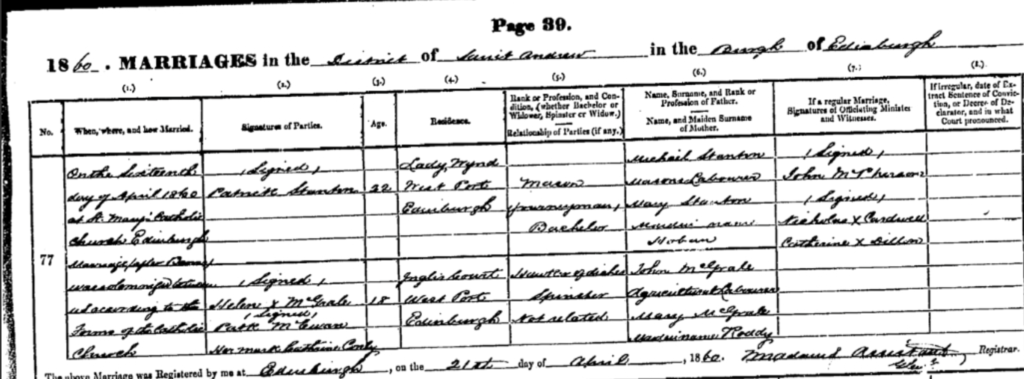 Page 39.
1860. MARRIAGES in the District of Saint Andrew in the Burgh of Edinburgh
(1.) (2.) (3.) (4.) (5.) (6.) (7.) (8.)
No.
When, where, and how Married.
Signatures of Parties.
Age.
Residence.
Rank or Profession, and Con-
dition, (whether Bachelor or
Widower, Spinster or Widow.)
Relationship of Parties (if any.)
Name, Surname, and Rank or
Profession of Father.
Name, and Maiden Surname
of Mother.
If a regular Marriage,
Signatures of Officiating Minister
and Witnesses.
If irregular, date of Ex-
tract Sentence of Convic-
tion, or Decree of De-
clarator, and in what
Court pronounced.
77
On the Sixteenth
day of April 1860
at St. Mary's Catholic
Church Edinburgh
Marriage (after Banns)
was solemnized between
us according to the
Forms of the Catholic
Church
(Signed)
Patrick Stanton
(Signed)
Helen X McGrale
(Signed)
Patk McEwan
Her mark Catherine
22
18
Lady Wynd
West Port
Edinburgh
Inglis Court
West Port
Edinburgh
Mason
(Journeyman)
Bachelor
Hawker of dishes
Spinster
Not related
Michael Stanton
Masons Labourer
Mary Stanton
Maiden name
Hoban
John McGrale
Agricultural Labourer
Mary McGrale
Maiden name Roddy
(Signed)
John McPherson
(Signed)
Nicholas X Cardwell
Catherine X Dillon
The above Marriage was Registered by me at Edinburgh, on the 21st day of April, 1860. Assistant Registrar.